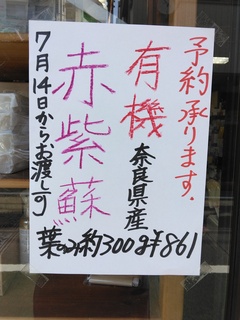 予約承ります.
有機
奈良県産
赤紫蘇
7月14日からお渡し可
葉のみ約300g¥861